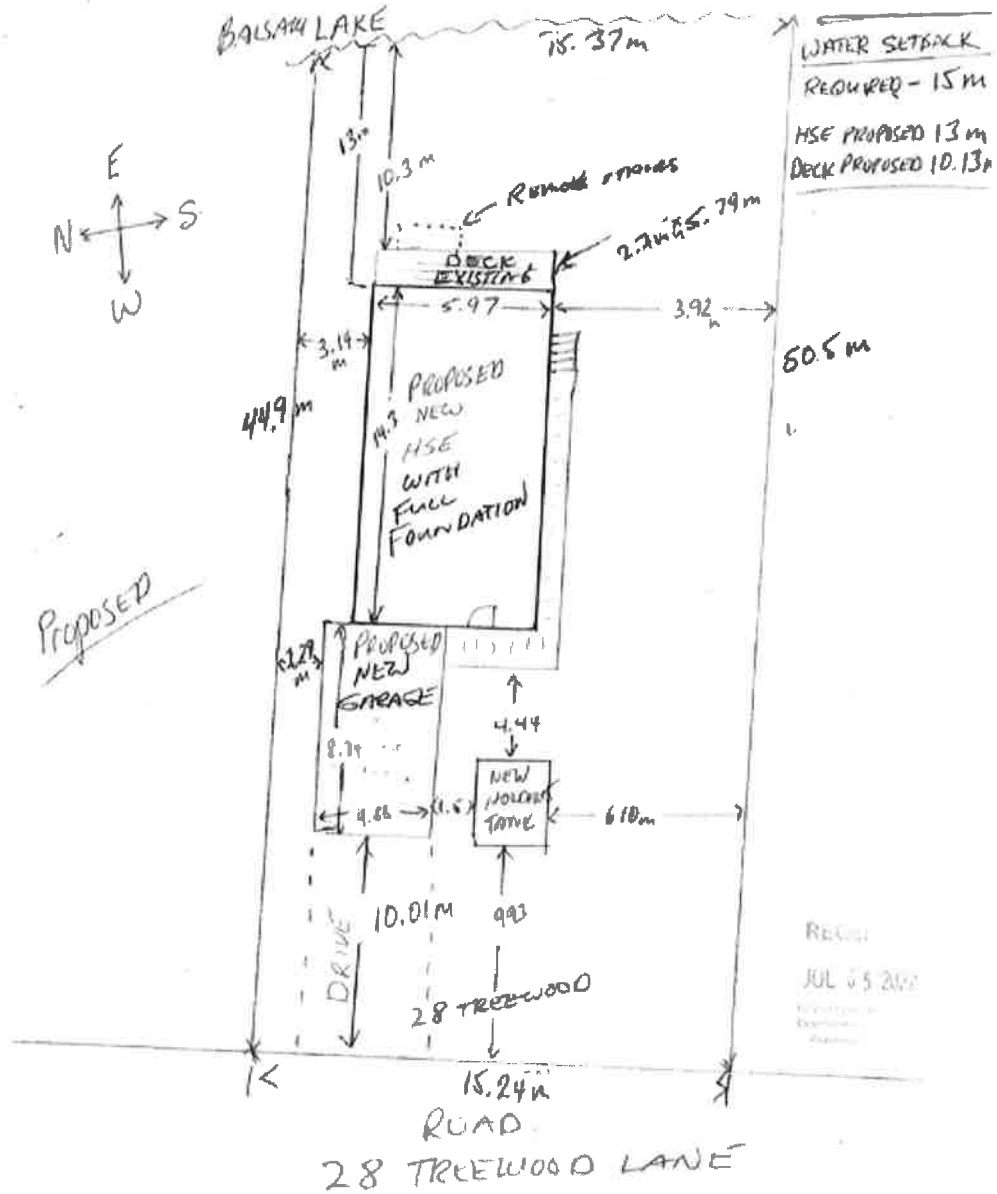 BALSAM LAKE
15.37m
WATER SETBACK
REQUIRED - 15 m
HSE PROPOSED 13 m
DECK PROPOSED 10.13m
E
N
S
W
13m
10.3 m
REMOVE
DECK
EXISTING
5.97
3.92
3.14
m
44.9 m
50.5 m
14.3
PROPOSED
NEW
HSE
WITH
FULL
FOUNDATION
PROPOSED
m
PROPOSED
NEW
GARAGE
4.44
8.74
4.88
NEW
HOLDING
TANK
DRIVE
10.01M
993
28 TREEWOOD
JUL 05
15.24m
ROAD
28 TREEWOOD LANE